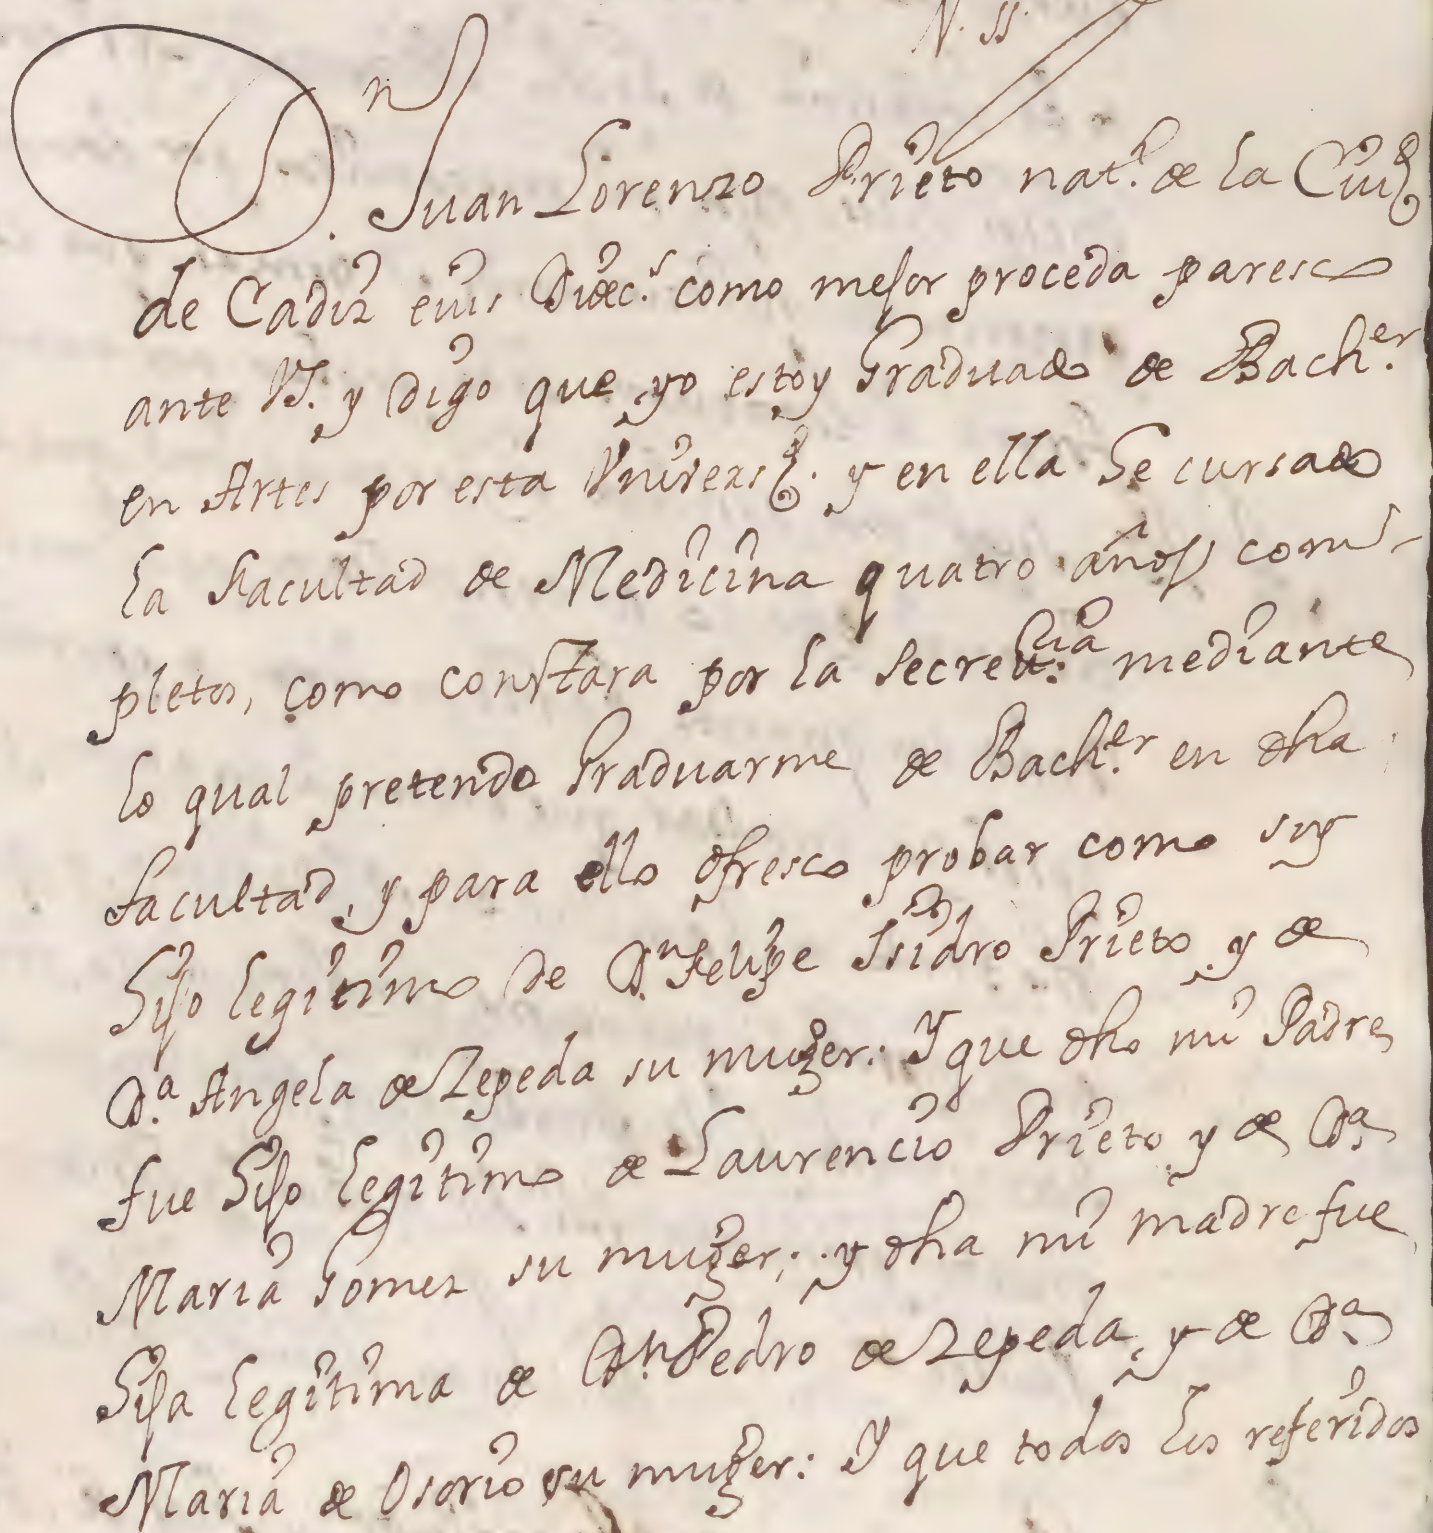 N. 55.
D.n Juan Lorenzo Prieto nat.l de la Ciud
de Cadiz en su Dioec.s como mejor proceda paresco
ante VS. y digo que yo estoy Graduado de Bach.er
en Artes por esta Vniversd. y en ella he cursado
la facultad de Medicina quatro años com-
pletos, como constara por la secret.ria mediante
lo qual pretendo Graduarme de Bach.er en dha
facultad, y para ello ofresco probar como soy
hijo legitimo de D.n Felipe Isidro Prieto y de
D.a Angela de Zepeda su muger: Y que dho mi Padre
fue hijo legitimo de Laurencio Prieto y de D.a
Maria Gomez su muger; y dha mi madre fue
hija legitima de D.n Pedro de Zepeda, y de D.a
Maria de Osorio su muger: Y que todos los referidos